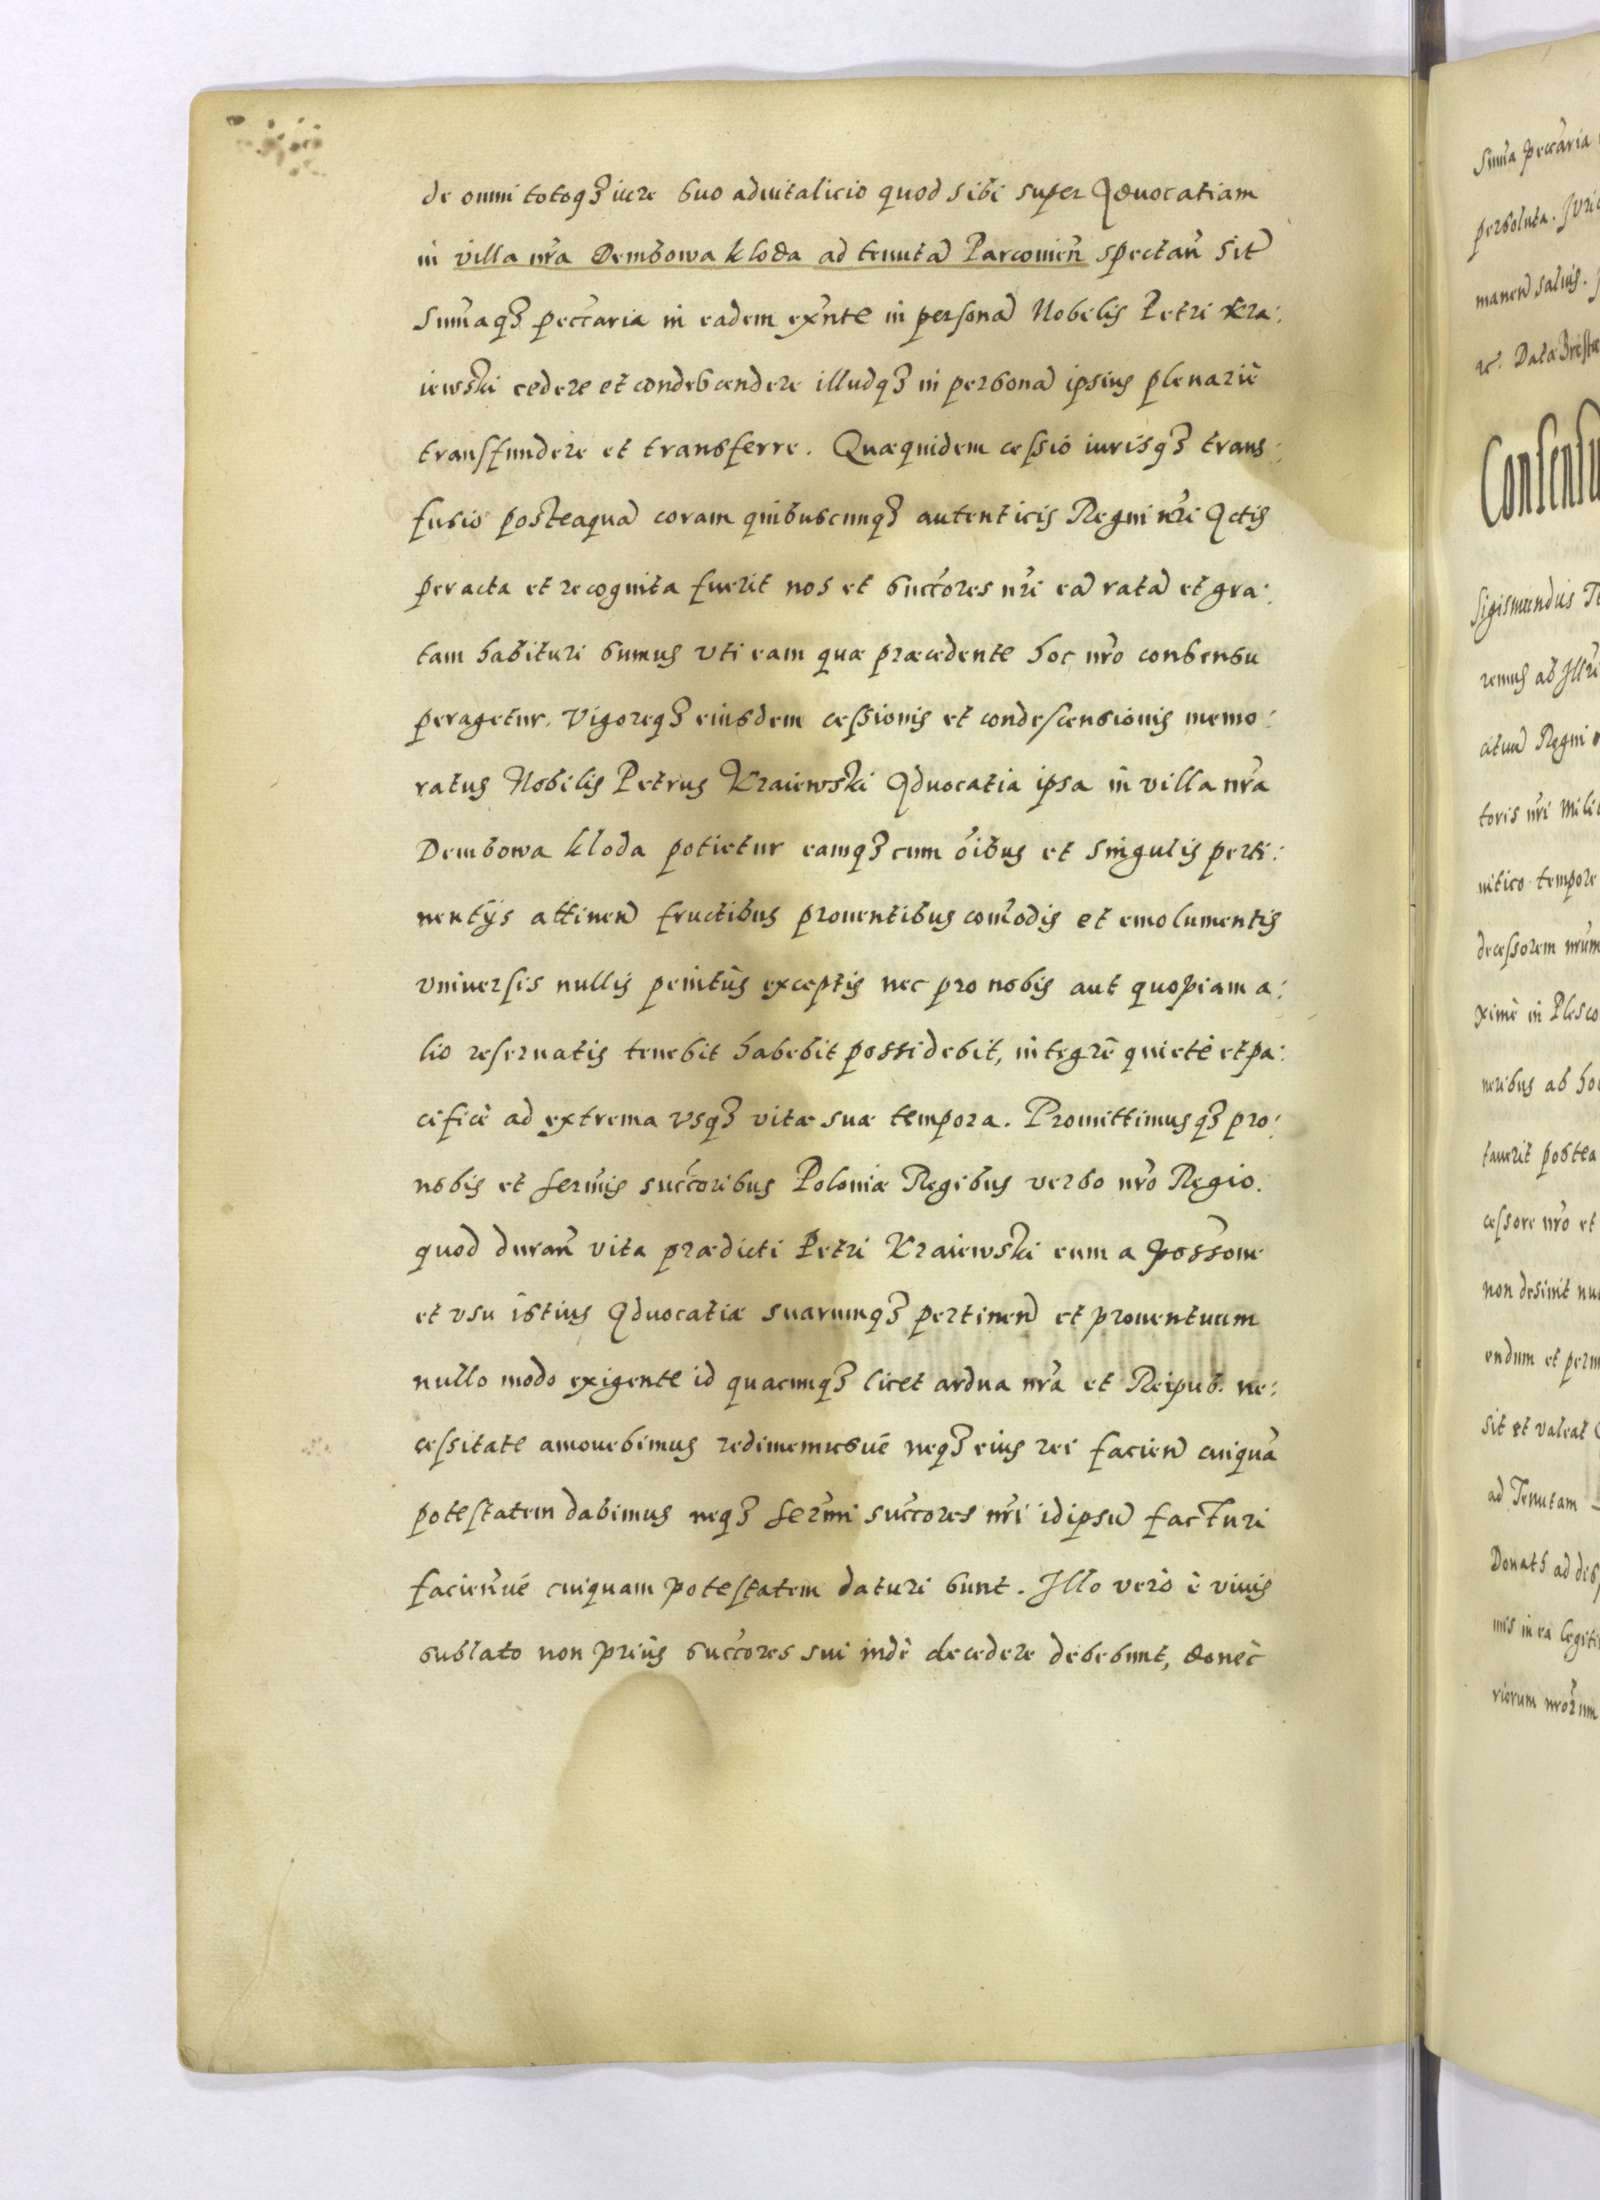 de omni totoqꝫ iure suo aduitalicio quod sibi super Aduocatiam
in villa nr̃a Dembowa kloda ad tenutã Parcouień spectań sit̃
Sum̃aqꝫ pecc̃aria in eadem ex̃nte in personã Nobilis Petri Kra:
iewski cedere et condescendere illudqꝫ in personã ipsius plenariè
transfundere et transferre. Quæquidem cessio iurisqꝫ trans:
fusio posteaquã coram quibuscunqꝫ autenticis Regni nr̃i Actis
peracta et recognita fuerit nos et succ̃ores nr̃i eã ratã et gra:
tam habituri sumus vti eam quæ præcedente hoc nr̃o consensu
peragetur. Vigoreqꝫ eiusdem cessionis et condescensionis memo:
ratus Nobilis Petrus Kraiewski Aduocatia ipsa in villa nr̃a
Dembowa kloda potietur eamqꝫ cum õibus et singulis perti:
nentijs attineñ fructibus prouentibus com̃odis et emolumentis
vniuersis nullis penitùs exceptis nec pro nobis aut quopiam a:
lio reseruatis tenebit habebit possidebit, integrè quietè et pa:
cificè ad extrema vsqꝫ vitæ suæ tempora. Promittimusqꝫ pro:
nobis et serm̃is succ̃oribus Poloniæ Regibus verbo nr̃o Regio.
quod durañ vita prædicti Petri Kraiewski eum a poss̃one
et vsu istius Aduocatiæ suarumqꝫ pertineñ et prouentuum
nullo modo exigente id quacunqꝫ licet ardua nr̃a et Reipub. ne:
cessitate amouebimus redimemusuè neqꝫ eius rei facieñ cuiquã
potestatem dabimus neqꝫ serm̃i succ̃ores nr̃i id ipsũ facturi
facieñuè cuiquam potestatem daturi sunt. Illo verò è viuis
sublato non priùs succ̃ores sui indè decedere debebunt, donèc
Sum̃a pecc̃aria
persoluta. Juri
maneñ saluis.
Datæ Brestæ
Consensu
Sigismundus
remus ab Illr̃i
citum Regni
toris nr̃i Mili
uitico tempore
decessorem nr̃um
ximè in Plesco
neribus ab ho
tauerit postea
cessore nr̃o et
non desinit nu
endum et perm
sit et valeat
ad Tenutam
Donats ad
mis in ea legiti
riorum nr̃orum